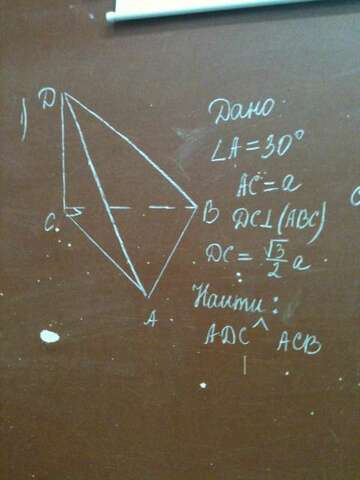 1)
D
C
B
A
Дано
∠A = 30°
AC = a
DC ⊥ (ABC)
DC = √3/2 a
Найти:
ADC ^ ACB